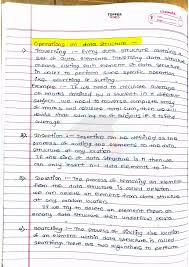 TOPPER
Operations on data structure :-
1) Traversing :- Every data structure contains a
set of data elements. Traversing data structure
means visiting each element of data structure
in order to perform some specific operation
like searching or sorting.
Example :- If we need to calculate average
of marks obtained by a student in different
subject, we need to traverse complete array
of marks and calculate total sum, then we
divide that sum by no of subjects if
average.
2) Insertion :- Insertion can be defined as the
process of adding the elements to the data
structure at any location.
If the size of data structure is n then we
can only insert n-1 data element
3) Deletion :- The process of removing an element
from the data structure is called deletion.
we can delete an element from data structure
at any random location.
If we try to delete an element from an
empty data structure then underflow occurs
4) Searching :- The process of finding the location
of an element within data structure is called
searching. There are two algorithms to perform